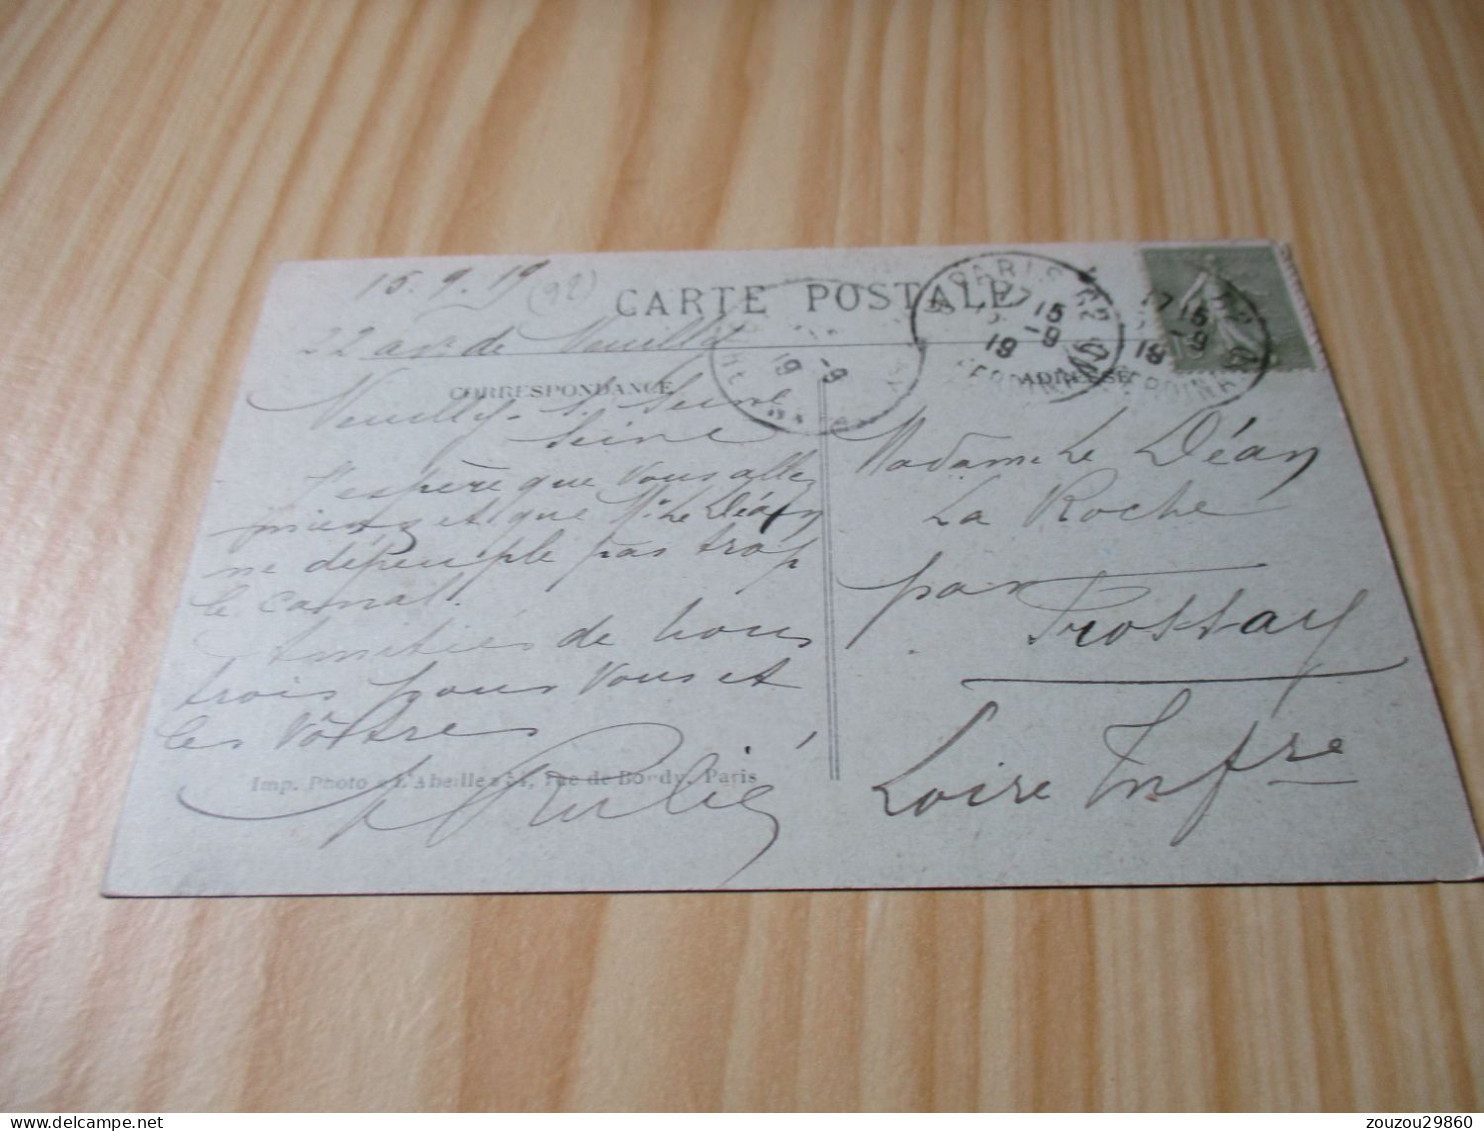 15.9.19
(92)
CARTE POSTALE
22 av. de Neuilly
CORRESPONDANCE
ADRESSE
Neuilly-s. Seine
Seine
J'espère que vous allez
mieux et que Mr Le Déan
ne dépeuple pas trop
le canal.
Amitiés de nous
trois pour vous et
les vôtres
Imp. Photo "L'Abeille" 51, rue de Bondy, Paris
PARIS
15
-9
19
15
-9
19
-9
19
Madame Le Déan
La Roche
par
Frossay
Loire Infre
zouzou29860